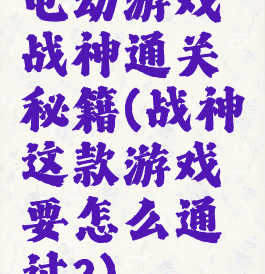 电动游戏
战神通关
秘籍(战神
这款游戏
要怎么通
过?)